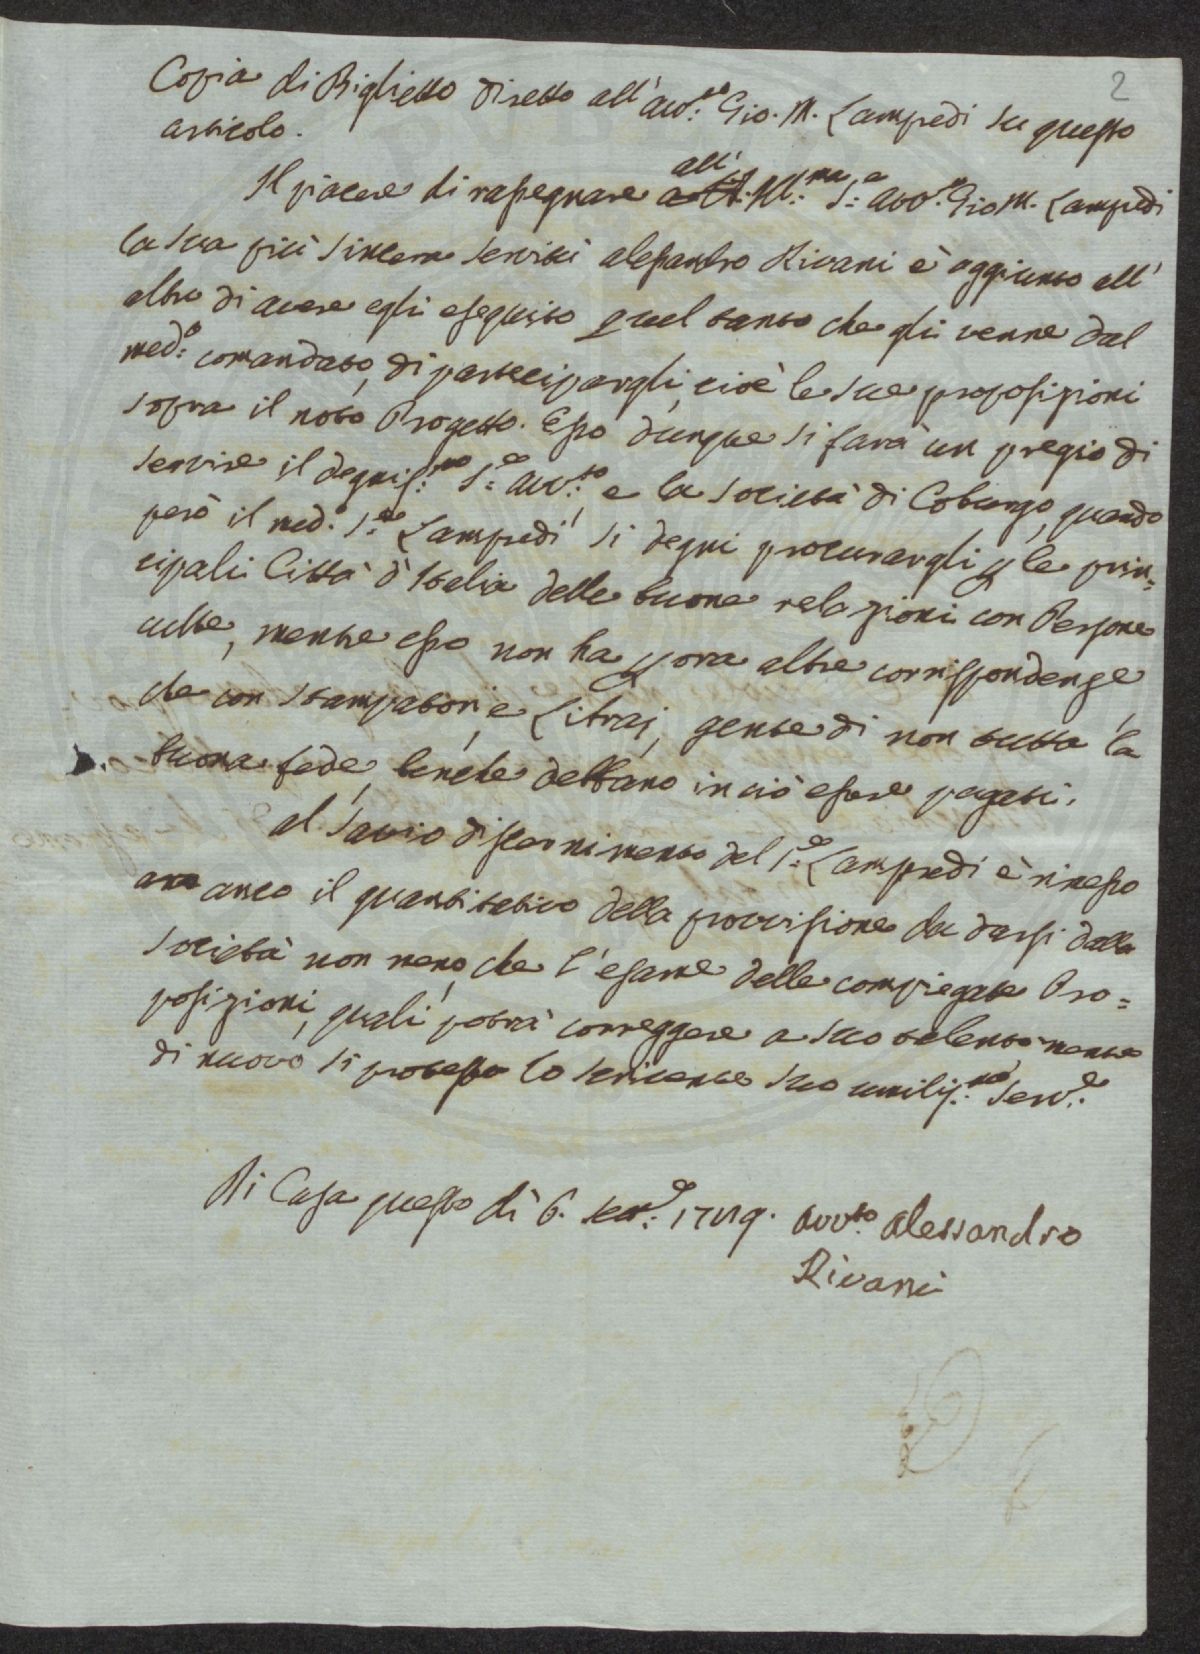 2
Copia di Biglietto diretto all' Avv.to Gio. M. Lampredi su questo
articolo.
Il piacere di rassegnare all' Ill.ma S.e Avv.to Gio M. Lampredi
la sua più sincera servitù Alessandro Rivani è aggiunto all'
altro di avere egli eseguito quel tanto che gli venne dal
med.o comandato, di partecipargli, cioè le sue proposizioni
sopra il noto Progetto. Esso dunque si farà un pregio di
servire il degniss.mo S.e Avv.to, e la Società di Coburgo, quando
però il med.o S.re Lampredi si degni procurargli p le prin=
cipali Città d'Italia delle buone relazioni con Persone
culte, mentre esso non ha p ora altre corrispondenze
che con stampatori, e Libraj, gente di non tutta la
buona fede, benche debbano in ciò essere pagati.
Al savio discernimento del S.e Lampredi è rimesso
anco il quantitativo della provvisione da darsi dalla
Società non meno, che l'esame delle compiegate Pro=
posizioni, quali potrà correggere a suo talento, mentre
di nuovo si protesta lo scrivente suo umiliss.mo Serv.e
Di Casa questo dì 6. Avv.to Alessandro
Rivani